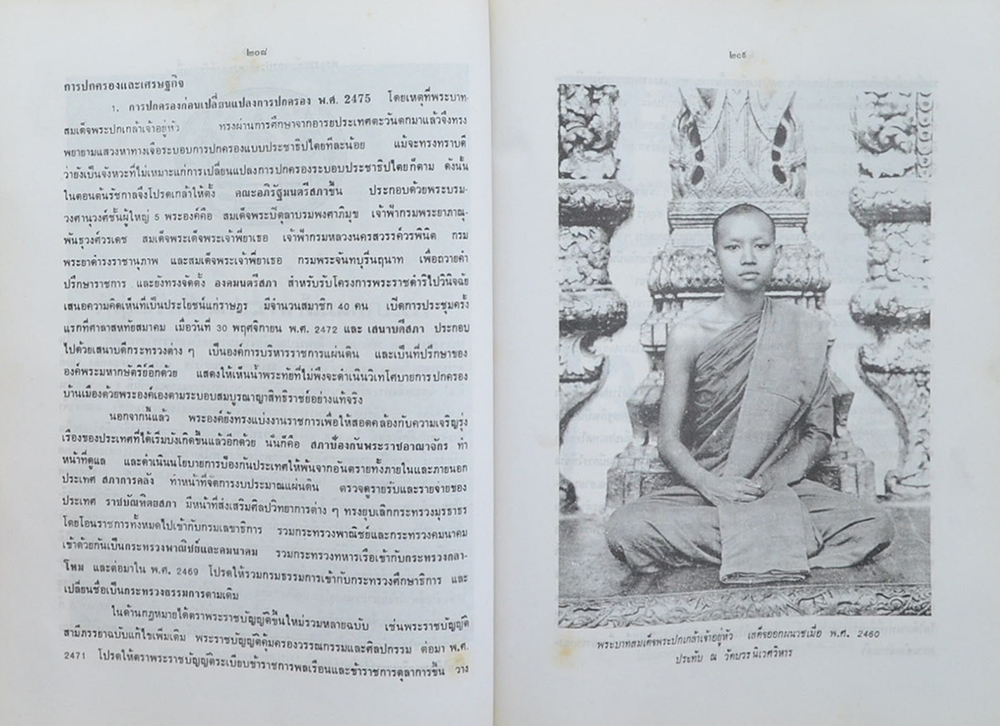 ๒๐๘
การปกครองและเศรษฐกิจ
1. การปกครองก่อนเปลี่ยนแปลงการปกครอง พ.ศ. 2475 โดยเหตุที่พระบาท
สมเด็จพระปกเกล้าเจ้าอยู่หัว ทรงผ่านการศึกษาจากอารยประเทศตะวันตกมาแล้วจึงทรง
พยายามแสวงหาทางเจือระบอบการปกครองแบบประชาธิปไตยทีละน้อย แม้จะทรงทราบดี
ว่ายังเป็นจังหวะที่ไม่เหมาะแก่การเปลี่ยนแปลงการปกครองระบอบประชาธิปไตยก็ตาม ดังนั้น
ในตอนต้นรัชกาลจึงโปรดเกล้าให้ตั้ง คณะอภิรัฐมนตรีสภาขึ้น ประกอบด้วยพระบรม-
วงศานุวงศ์ชั้นผู้ใหญ่ 5 พระองค์คือ สมเด็จพระปิตุลาบรมพงศาภิมุข เจ้าฟ้ากรมพระยาภาณุ-
พันธุวงศ์วรเดช สมเด็จพระเด็จพระเจ้าพี่ยาเธอ เจ้าฟ้ากรมหลวงนครสวรรค์วรพินิต กรม
พระยาดำรงราชานุภาพ และสมเด็จพระเจ้าพี่ยาเธอ กรมพระจันทบุรีนฤนาท เพื่อถวายคำ
ปรึกษาราชการ และยังทรงจัดตั้ง องคมนตรีสภา สำหรับรับโครงการพระราชดำริไปวินิจฉัย
เสนอความคิดเห็นที่เป็นประโยชน์แก่ราษฎร มีจำนวนสมาชิก 40 คน เปิดการประชุมครั้ง
แรกที่ศาลาสหทัยสมาคม เมื่อวันที่ 30 พฤศจิกายน พ.ศ. 2472 และ เสนาบดีสภา ประกอบ
ไปด้วยเสนาบดีกระทรวงต่าง ๆ เป็นองค์การบริหารราชการแผ่นดิน และเป็นที่ปรึกษาของ
องค์พระมหากษัตริย์อีกด้วย แสดงให้เห็นน้ำพระทัยที่ไม่พึงจะดำเนินวิเทโศบายการปกครอง
บ้านเมืองด้วยพระองค์เองตามระบอบสมบูรณาญาสิทธิราชย์อย่างแท้จริง
นอกจากนี้แล้ว พระองค์ยังทรงแบ่งงานราชการเพื่อให้สอดคล้องกับความเจริญรุ่ง
เรืองของประเทศที่ได้เริ่มบังเกิดขึ้นแล้วอีกด้วย นั่นก็คือ สภาป้องกันพระราชอาณาจักร ทำ
หน้าที่ดูแล และดำเนินนโยบายการป้องกันประเทศให้พ้นจากอันตรายทั้งภายในและภายนอก
ประเทศ สภาการคลัง ทำหน้าที่จัดการงบประมาณแผ่นดิน ตรวจดูรายรับและรายจ่ายของ
ประเทศ ราชบัณฑิตยสภา มีหน้าที่ส่งเสริมศิลปวิทยาการต่าง ๆ ทรงยุบเลิกกระทรวงมุรธาธร
โดยโอนราชการทั้งหมดไปเข้ากับกรมเลขาธิการ รวมกระทรวงพาณิชย์และกระทรวงคมนาคม
เข้าด้วยกันเป็นกระทรวงพาณิชย์และคมนาคม รวมกระทรวงทหารเรือเข้ากับกระทรวงกลา-
โหม และต่อมาใน พ.ศ. 2469 โปรดให้รวมกรมธรรมการเข้ากับกระทรวงศึกษาธิการ และ
เปลี่ยนชื่อเป็นกระทรวงธรรมการตามเดิม
ในด้านกฎหมายได้ตราพระราชบัญญัติขึ้นใหม่รวมหลายฉบับ เช่นพระราชบัญญัติ
สามีภรรยาฉบับแก้ไขเพิ่มเติม พระราชบัญญัติคุ้มครองวรรณกรรมและศิลปกรรม ต่อมา พ.ศ.
2471 โปรดให้ตราพระราชบัญญัติระเบียบข้าราชการพลเรือนและข้าราชการตุลาการขึ้น วาง
๒๐๙
พระบาทสมเด็จพระปกเกล้าเจ้าอยู่หัว เสด็จออกผนวชเมื่อ พ.ศ. 2460
ประทับ ณ วัดบวรนิเวศวิหาร